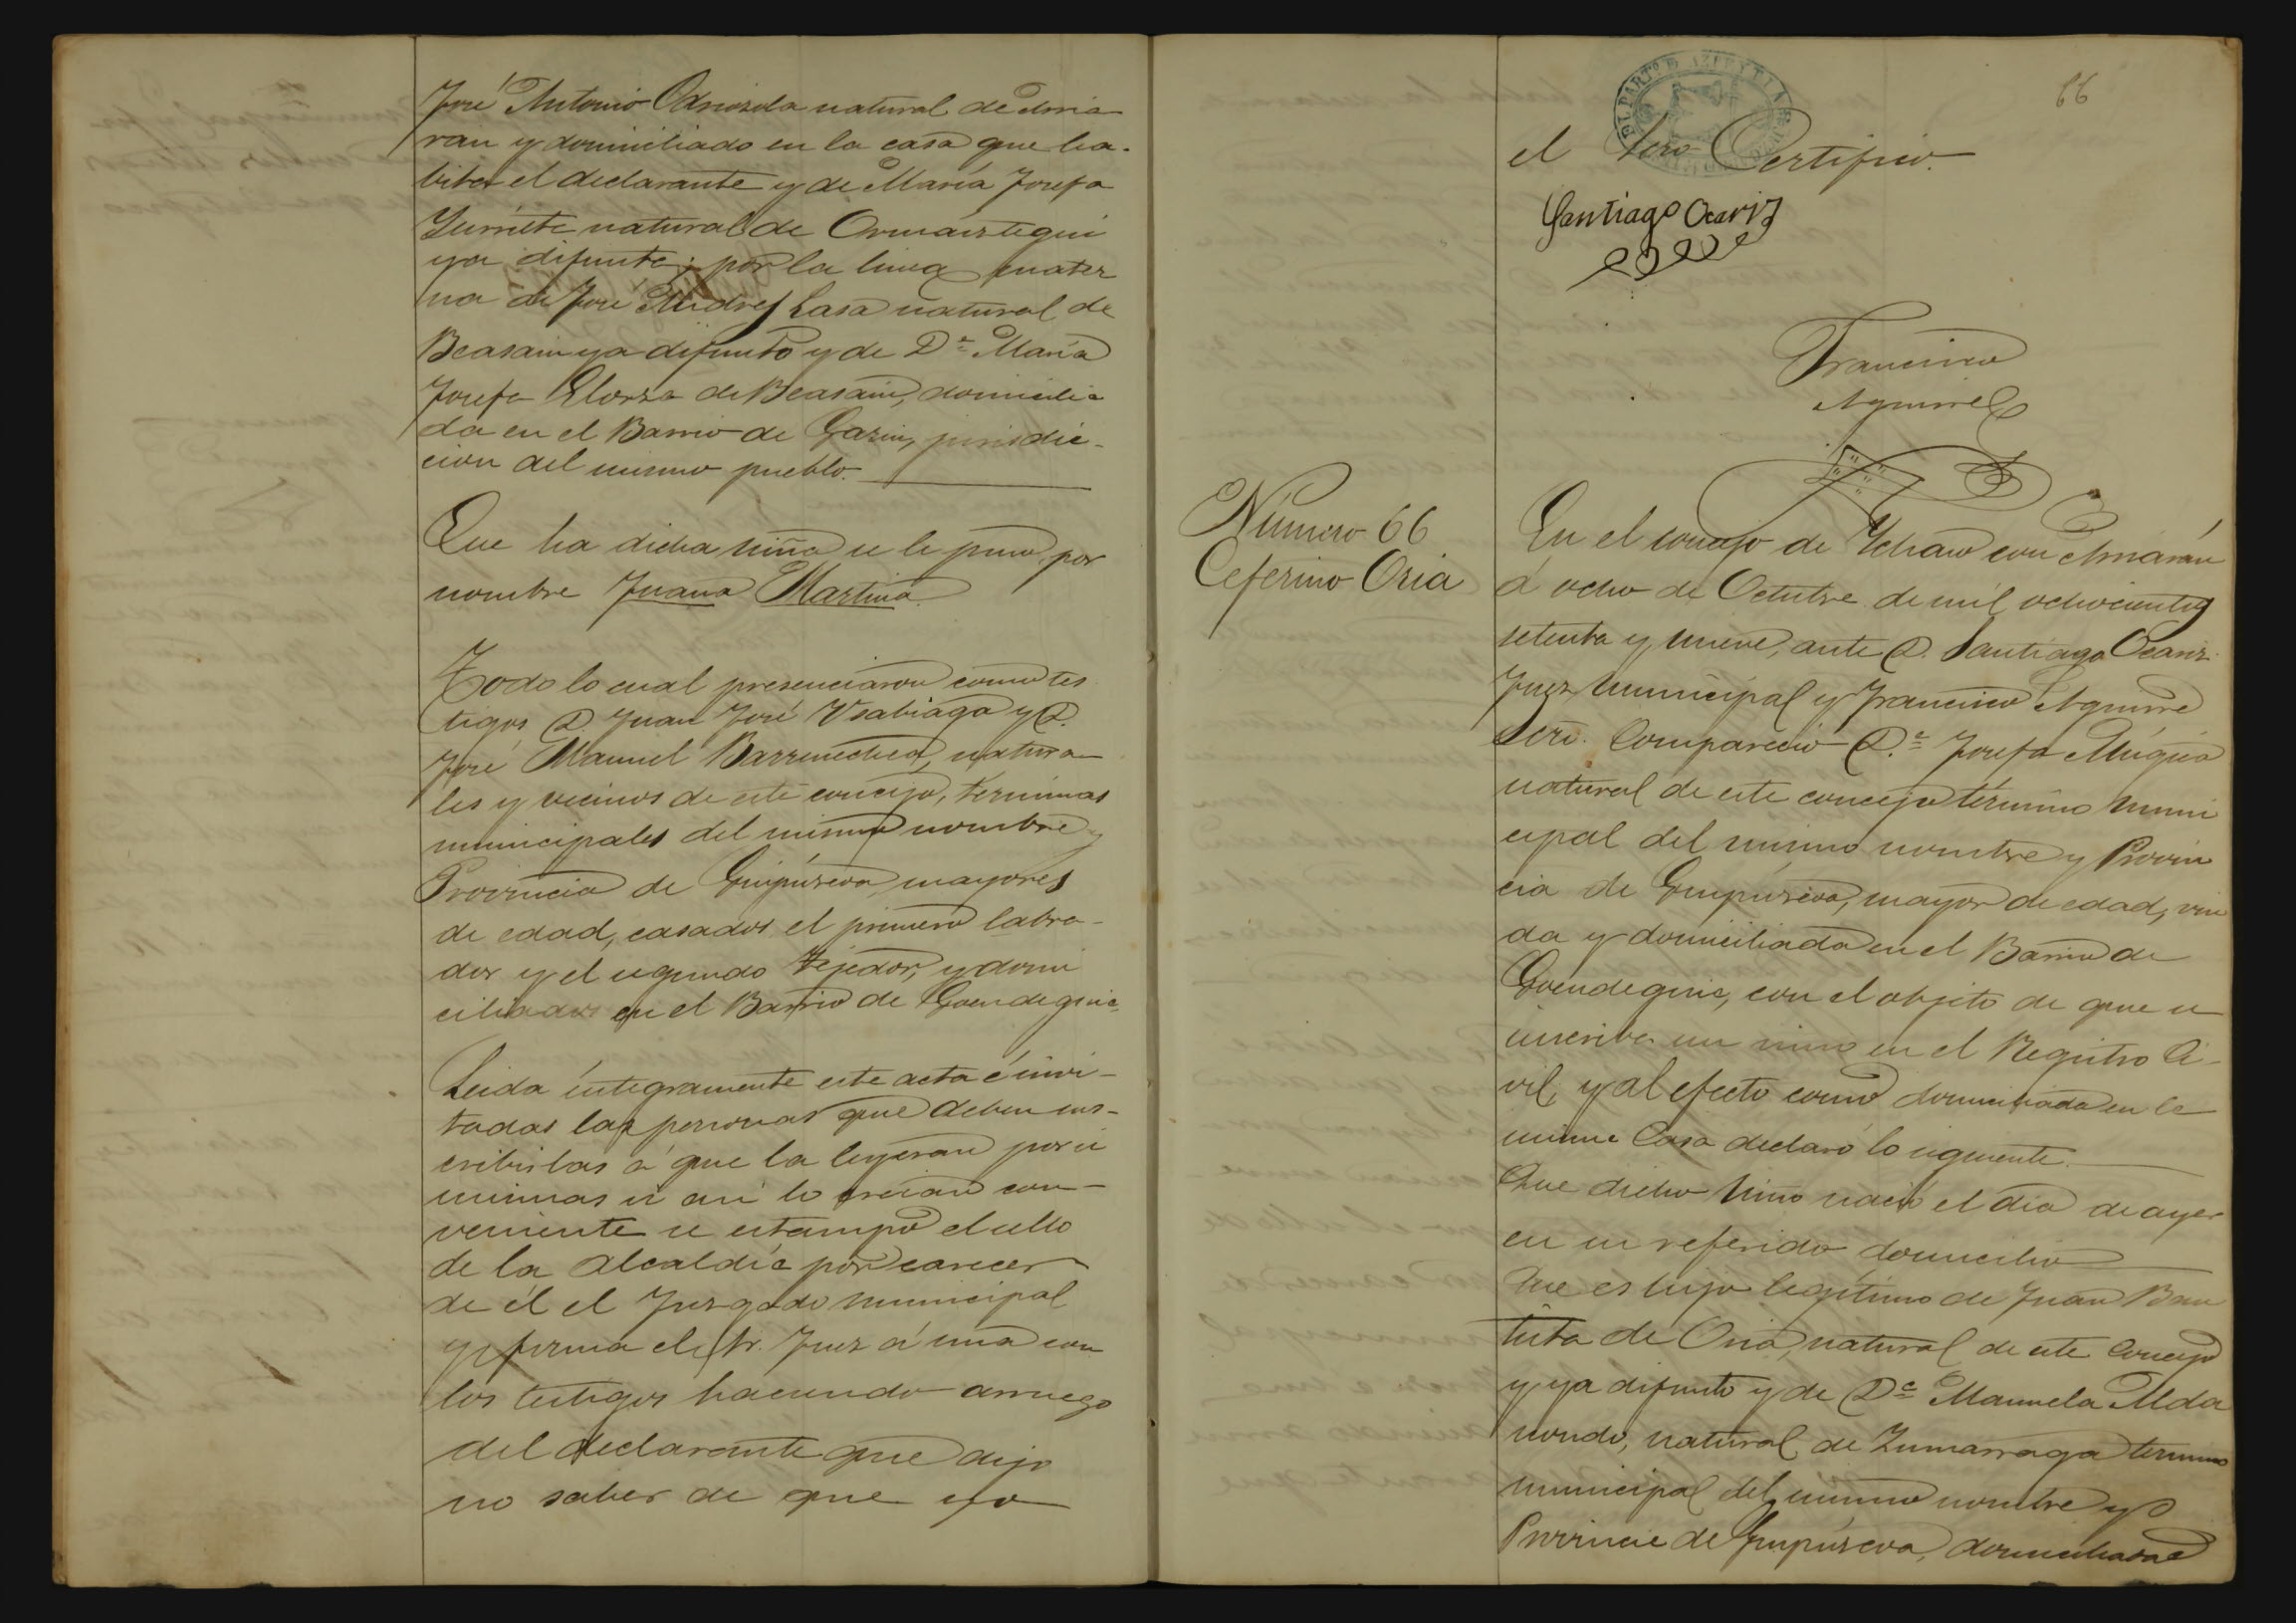 José Antonio Odriozola natural de Arria
ran y domiciliado en la casa que ha-
bita el declarante y de María Josefa
natural de Ormaiztegui
ya difunta; por la linea mater
na de José Andres Lasa natural de
Beasain ya difunto y de Dª María
Josefa Elorza de Beasain, domicilia
da en el Barrio de Garin, jurisdic-
cion del mismo pueblo.
Que ha dicha niña se le puso por
nombre Juana Martina.
Todo lo cual presenciaron como tes
tigos D. Juan José Usabiaga y D.
José Manuel Barrenechea, natura
les y vecinos de este concejo, términos
municipales del mismo nombre y
Provincia de Guipúzcoa, mayores
de edad, casados el primero labra-
dor y el segundo tejedor, y domi
ciliados en el Barrio de Goendeguia
Leida íntegramente este acta é invi-
tadas las personas que deben sus-
cribirlas á que la leyeran por si
mismas si asi lo creian con-
veniente se estampó el sello
de la Alcaldía por carecer
de él el Juzgado municipal
y firma el Sr. Juez á una con
los testigos haciendo arruego
del declarante que dijo
no saber de que yo
66
el Scro Certifico.
Santiago Ocariz
Francisco
Aguirre
Número 66
Ceferino Oria
En el concejo de Ychaso con Arriarán
á ocho de Octubre de mil ochocientos
setenta y nueve, ante D. Santiago Ocariz
Juez municipal y Francisco Aguirre
Scro. Compareció D.ª Josefa Múgica
natural de este concejo término muni
cipal del mismo nombre y Provin
cia de Guipúzcoa, mayor de edad, viu
da y domiciliada en el Barrio de
Goendeguia, con el objeto de que se
inscriba un niño en el Registro Ci-
vil, y al efecto como domiciliada en la
misma Casa declaró lo siguiente.
Que dicho niño nació el dia de ayer
en su referido domicilio
Que es hijo legítimo de Juan Bau
tista de Oria, natural de este Concejo
y ya difunto y de Dª Manuela Alda
nondo, natural de Zumarraga termino
municipal del mismo nombre y
Provincia de Guipúzcoa, domiciliada